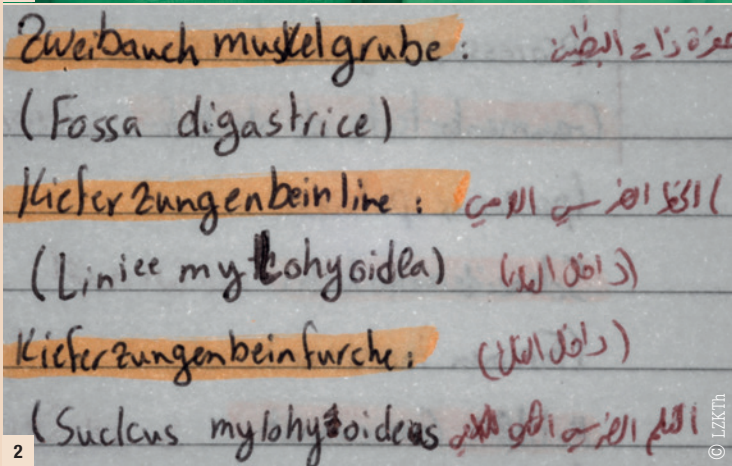 Zweibauch muskelgrube : حفرة ذات البطين
(Fossa digastrice)
Kieferzungenbeinline : الخط الضرسي اللامي
(Liniee mylohyoidea)
Kieferzungenbeinfurche :
(Suclcus mylohyoideas
2
© LZKTh